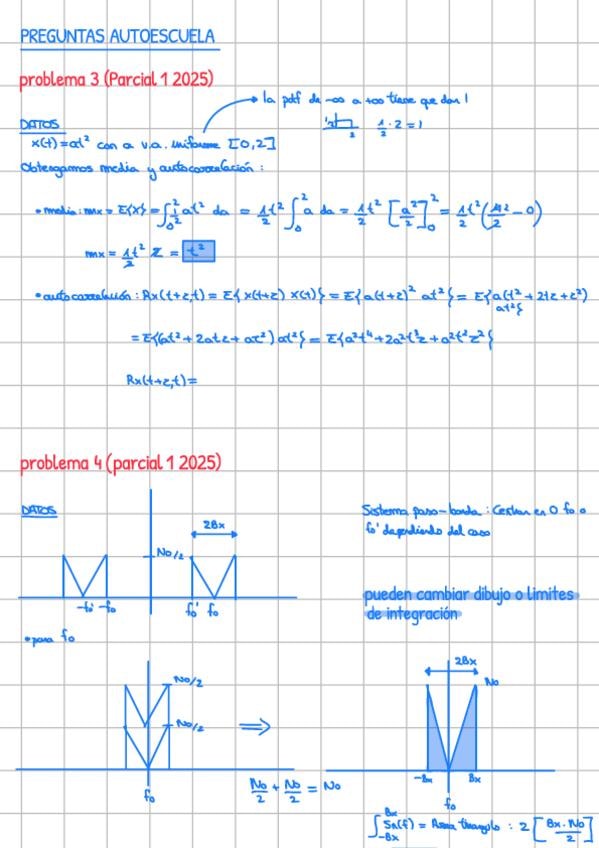 PREGUNTAS AUTOESCUELA
problema 3 (Parcial 1 2025)
la pdf de -∞ a +∞ tiene que dar 1
DATOS
1/2 · 2 = 1
x(t) = at² con a v.a. uniforme [0,2]
Obtengamos media y autocorrelación :
• media : mx = E{x} = ∫₀² 1/2 at² da = 1/2 t² ∫₀² a da = 1/2 t² [a²/2]₀² = 1/2 t² (4/2 - 0)
mx = 1/2 t² 2 = t²
• autocorrelación : Rx(t+z,t) = E{x(t+z) x(t)} = E{a(t+z)² at²} = E{a(t² + 2tz + z²)
at²}
= E{(at² + 2atz + az²) at²} = E{a²t⁴ + 2a²t³z + a²t²z²}
Rx(t+z,t) =
problema 4 (parcial 1 2025)
DATOS
2Bx
No/2
-fo' -fo
fo' fo
Sistema paso-banda : Centran en 0 fo o
fo' dependiendo del caso
pueden cambiar dibujo o limites
de integración
• para fo
No/2
No/2
⇒
fo
No/2 + No/2 = No
2Bx
No
-Bx
Bx
fo
∫₋Bx^Bx Sn(f) = Area triangulo : 2 [Bx · No/2]